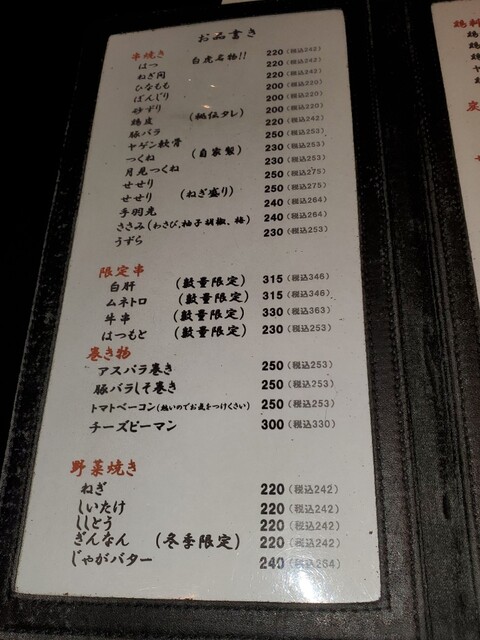 お品書き
串焼き 白虎名物!!
はつ 220(税込242)
ねぎ間 220(税込242)
ひなもも 200(税込220)
ぼんじり 200(税込220)
砂ずり 200(税込220)
鶏皮 (秘伝タレ) 220(税込242)
豚バラ 250(税込253)
ヤゲン軟骨 230(税込253)
つくね (自家製) 230(税込253)
月見つくね 250(税込275)
せせり
せせり (ねぎ盛り) 250(税込275)
手羽先 240(税込264)
ささみ(わさび,柚子胡椒、梅) 240(税込264)
うずら 230(税込253)
限定串
白肝 (数量限定) 315(税込346)
ムネトロ (数量限定) 315(税込346)
牛串 (数量限定) 330(税込363)
はつもと (数量限定) 230(税込253)
巻き物
アスパラ巻き 250(税込253)
豚バラしそ巻き 250(税込253)
トマトベーコン(熱いのでお気をつけください) 250(税込253)
チーズピーマン 300(税込330)
野菜焼き
ねぎ 220(税込242)
しいたけ 220(税込242)
ししとう 220(税込242)
ぎんなん (冬季限定) 220(税込242)
じゃがバター 240(税込264)